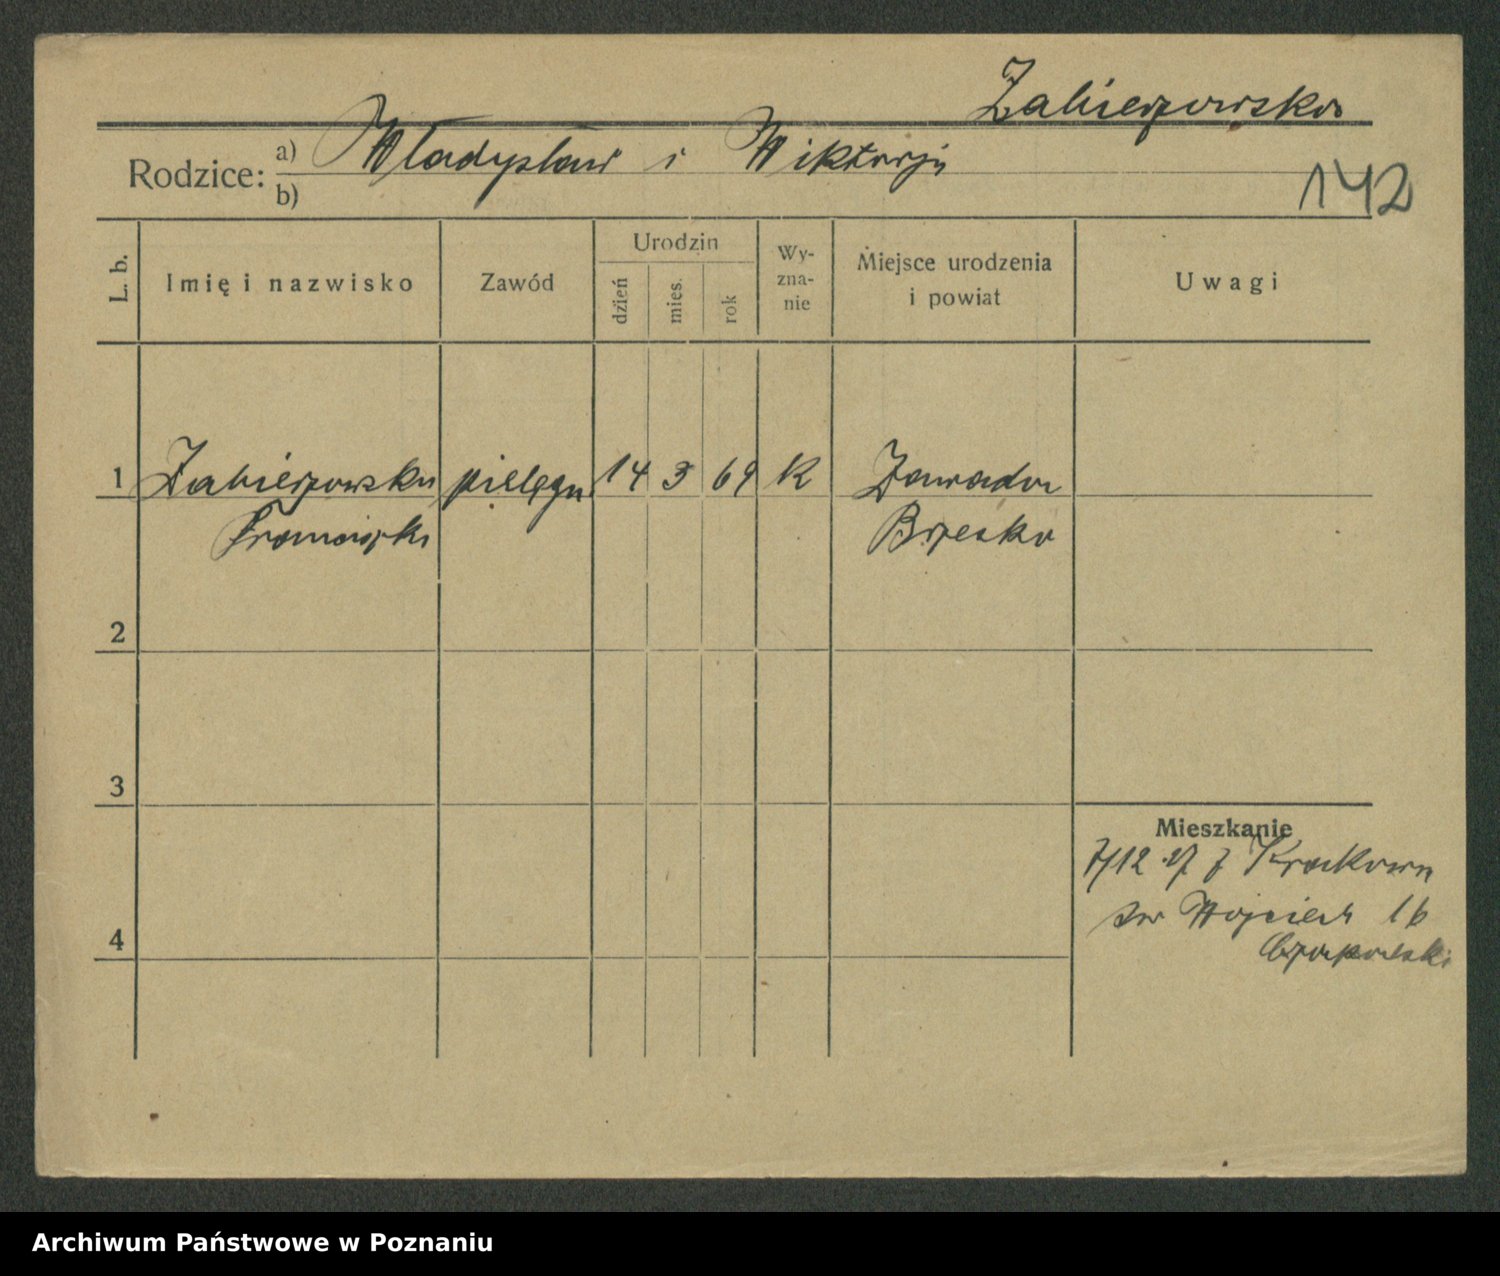 Zabierzowska
Rodzice: a) Władysław i Wiktorja
b)
142
L. b.
Imię i nazwisko
Zawód
Urodzin
dzień
mies.
rok
Wy-
zna-
nie
Miejsce urodzenia
i powiat
Uwagi
1 Zabierzowska pielęgn 14 3 69 K Zawada
Brzesko
2
3
4
Mieszkanie
7/12 27 z Krakowa
św Wojciech 16
Archiwum Państwowe w Poznaniu